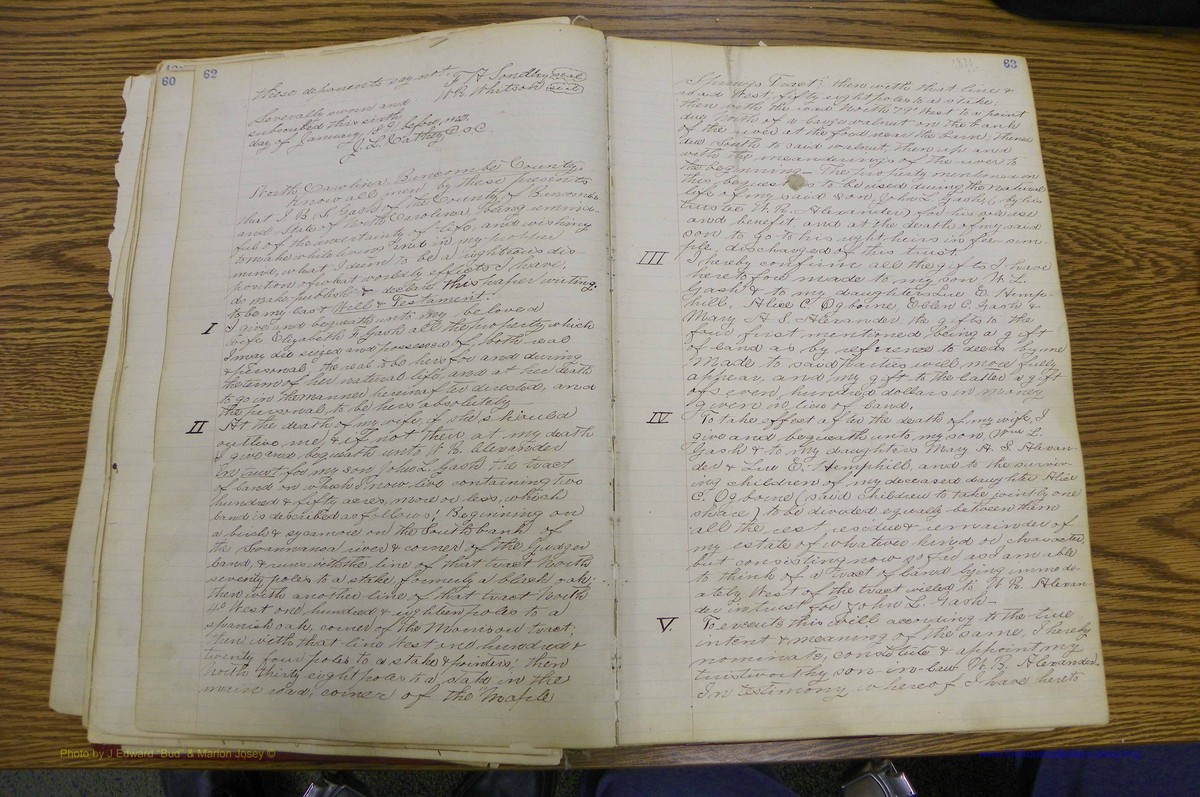 60
62
these deponents say not.
F. A. Sondley seal
W. R. Whitson seal
Severally sworn and
subscribed this sixth
day of January 18 before me.
J. L. Cathey C.S.C.
North Carolina, Buncombe County.
Know all men by these presents
that I B. S. Gash of the County of Buncombe
and State of North Carolina, being remind-
ful of the uncertainty of life, and wishing
to make while living and in my proper
mind, what I deem to be a righteous dis-
position of what worldly effects I have,
do make, publish & declare this paper writing
to be my last Will & Testament.
I
I give and bequeath unto my beloved
wife Elizabeth Gash all the property which
I may die seized and possessed of both real
& personal, the real to be hers for and during
the term of her natural life, and at her death
to go in the manner hereinafter directed, and
the personal, to be hers absolutely.
II
At the death of my wife, if she should
outlive me, & if not then at my death
I give and bequeath unto W. R. Alexander
In trust for my son John L. Gash the tract
of land on which I now live containing two
hundred & fifty acres, more or less, which
land is described as follows: Beginning on
a birch & sycamore on the South bank of
the Swannanoa river & corner of the Gudger
land, & runs with the line of that tract North
seventy poles to a stake, formerly a black oak;
then with another line of that tract North
4° West one hundred & eighteen poles to a
spanish oak, corner of the Morrison tract;
then with that line West one hundred &
twenty four poles to a stake & pointers; then
north thirty eight poles to a stake in the
main road, corner of the "Maple
63
Springs Tract", then with that line &
road West, fifty eight poles to a stake;
then with the road North 79° West to a point
due North of a large walnut on the bank
of the river at the ford near the barn, thence
due South to said walnut, then up and
with the meanderings of the river to
the beginning. The property mentioned in
this bequest is to be used during the natural
life of my said son, John L. Gash, (by his
trustee W. R. Alexander) for his sole use
and benefit and at the death of my said
son to go to his right heirs in fee sim-
ple, discharged of this trust.
III
I hereby confirm all the gifts I have
heretofore made to my son W. L.
Gash & to my daughters Lue E. Hemp-
hill, Alice C. Ogborne, Ellen C. Gash &
Mary H. S. Alexander, the gifts to the
four first mentioned being a gift
of land as by reference to deeds by me
Made to said parties will more fully
appear, and my gift to the latter a gift
of seven hundred dollars in money
given in lieu of land.
IV
To take effect after the death of my wife, I
give and bequeath unto my son Wm L.
Gash & to my daughters Mary H. S. Alexan-
der & Lue E. Hemphill, and to the surviv-
ing children of my deceased daughter Alice
C. Ogborne (said children to take jointly one
share) to be divided equally between them
all the rest, residue & remainder of
my estate of whatever kind or character,
but consisting now so far as I am able
to think of a tract of land lying immedi-
ately West of the tract willed to W. R. Alexan-
der in trust for John L. Gash.
V.
To execute this will according to the true
intent & meaning of the same, I hereby
nominate, constitute & appoint my
trustworthy son-in-law W. R. Alexander.
In testimony whereof I have hereto
Photo by J Edward "Bud" & Marion Josey ©